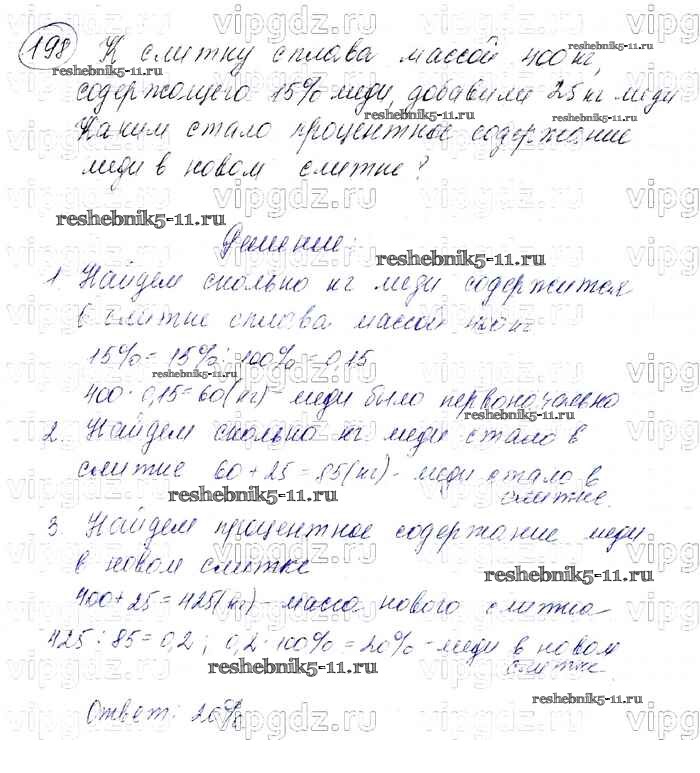 198 К слитку сплава массой 400 кг,
содержащего 15% меди, добавили 25 кг меди
Каким стало процентное содержание
меди в новом слитке?
reshebnik5-11.ru
Решение:
1. Найдем сколько кг меди содержится
в слитке сплава массой 400 кг
15% = 15% : 100% = 0,15
400 · 0,15 = 60 (кг) - меди было первоначально
2. Найдем сколько кг меди стало в
слитке 60 + 25 = 85 (кг) - меди стало в
слитке.
3. Найдем процентное содержание меди
в новом слитке
400 + 25 = 425 (кг) - масса нового слитка
425 : 85 = 0,2 ; 0,2 · 100% = 20% - меди в новом
слитке.
Ответ: 20%
vipgdz.ru